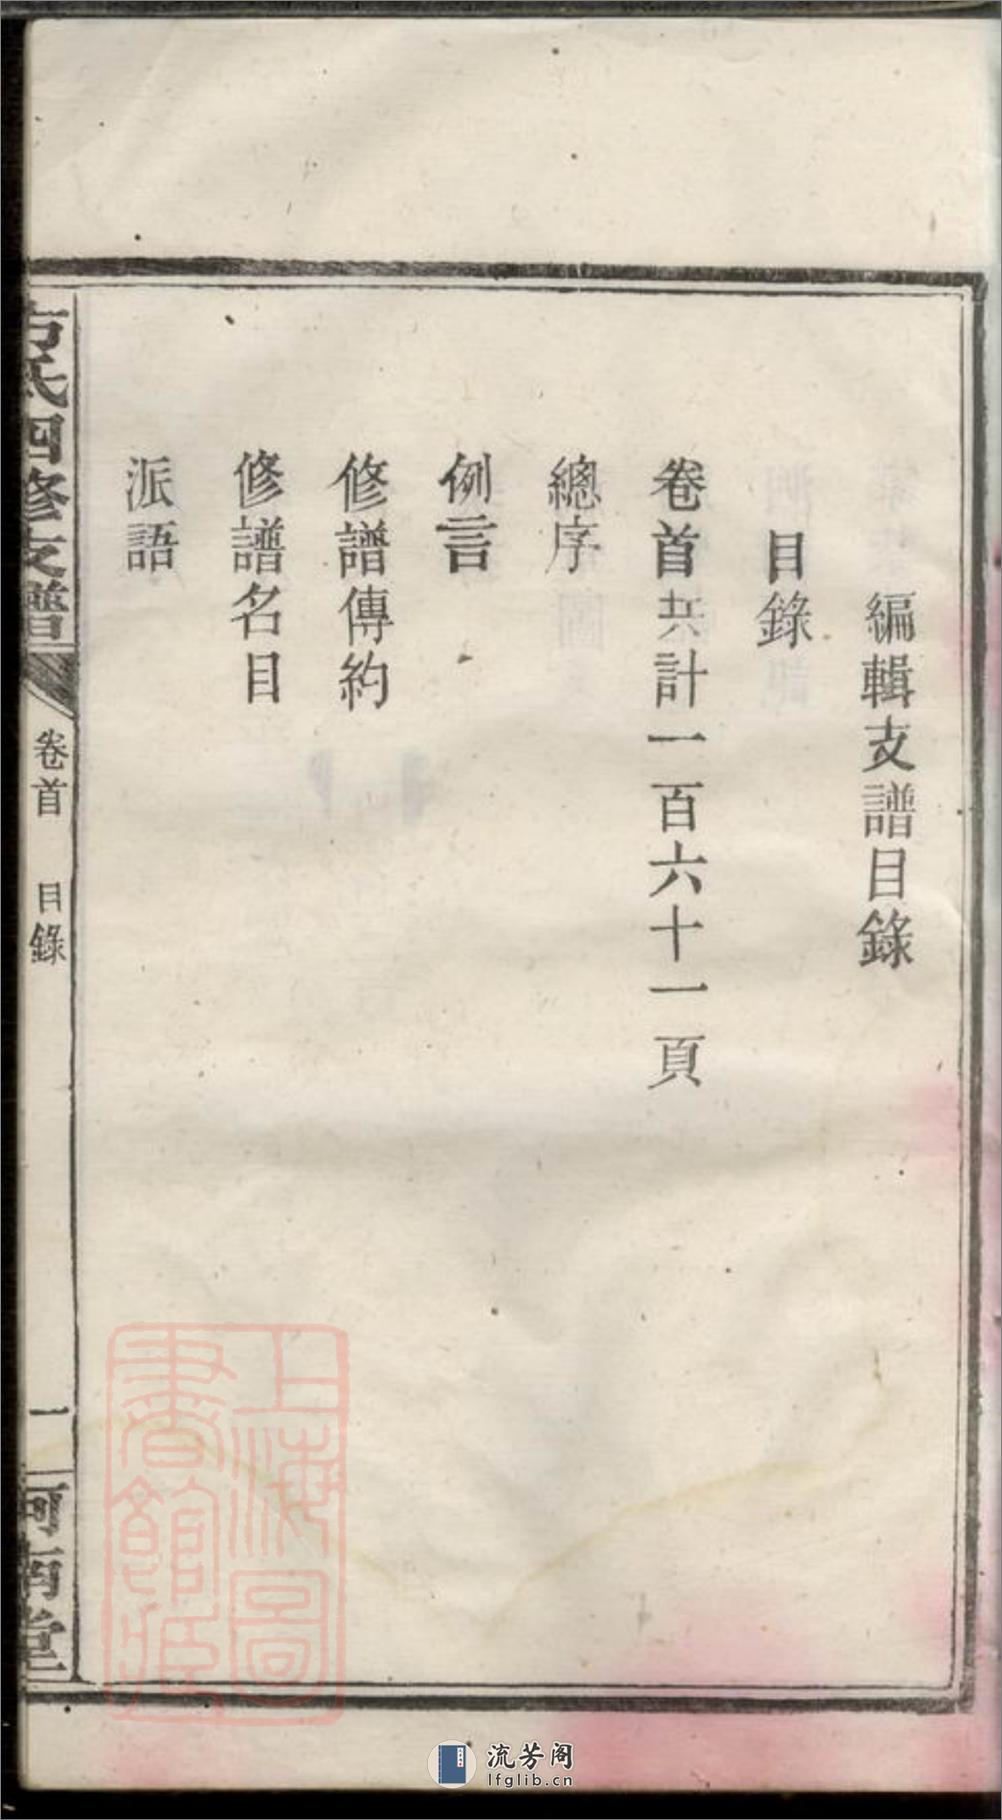 編輯支譜目錄
目錄
卷首共計一百六十一頁
總序
例言
修譜傳約
修譜名目
派語
氏四修支譜
卷首
目錄
一
堂
上海圖書館藏
流芳阁
lfglib.cn